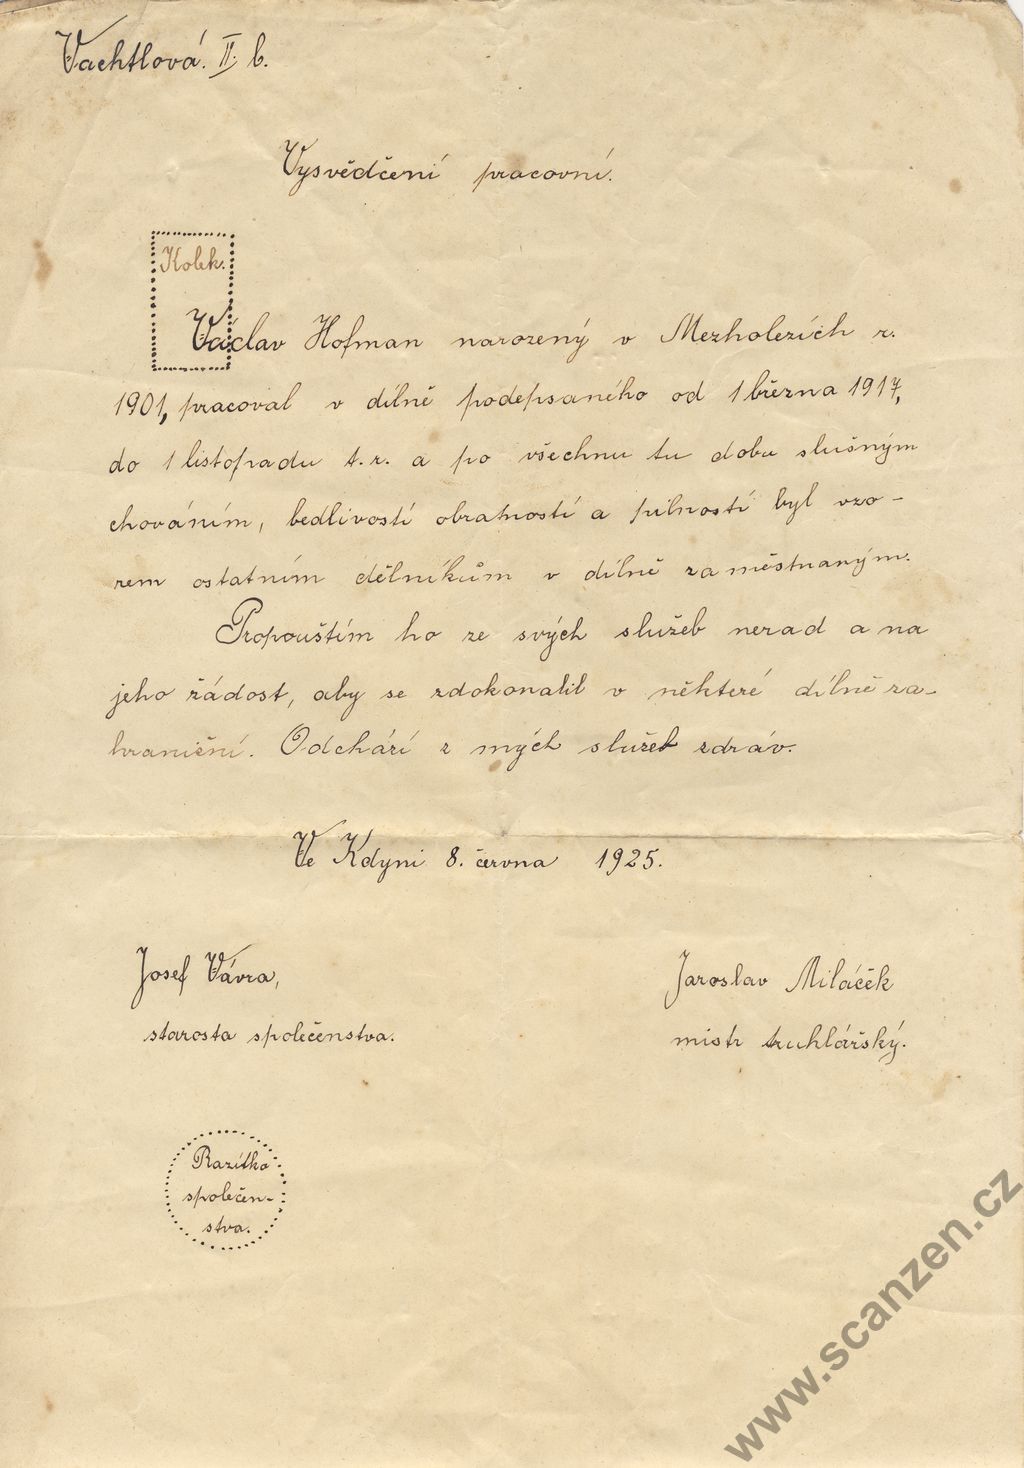 Vachtlová. II. b.
Vysvědčení pracovní.
Kolek.
Václav Hofman narozený v Mezholezích r.
1901, pracoval v dílně podepsaného od 1 března 1917,
do 1 listopadu t. r. a po všechnu tu dobu slušným
chováním, bedlivostí obratností a pilností byl vzo-
rem ostatním dělníkům v dílně zaměstnaným.
Propouštím ho ze svých služeb nerad a na
jeho žádost, aby se zdokonalil v některé dílně za-
hraniční. Odchází z mých služeb zdráv.
Ve Kdyni 8. června 1925.
Josef Vávra,
starosta společenstva.
Jaroslav Miláček
mistr truhlářský.
Razítko
společen-
stva.
www.scanzen.cz